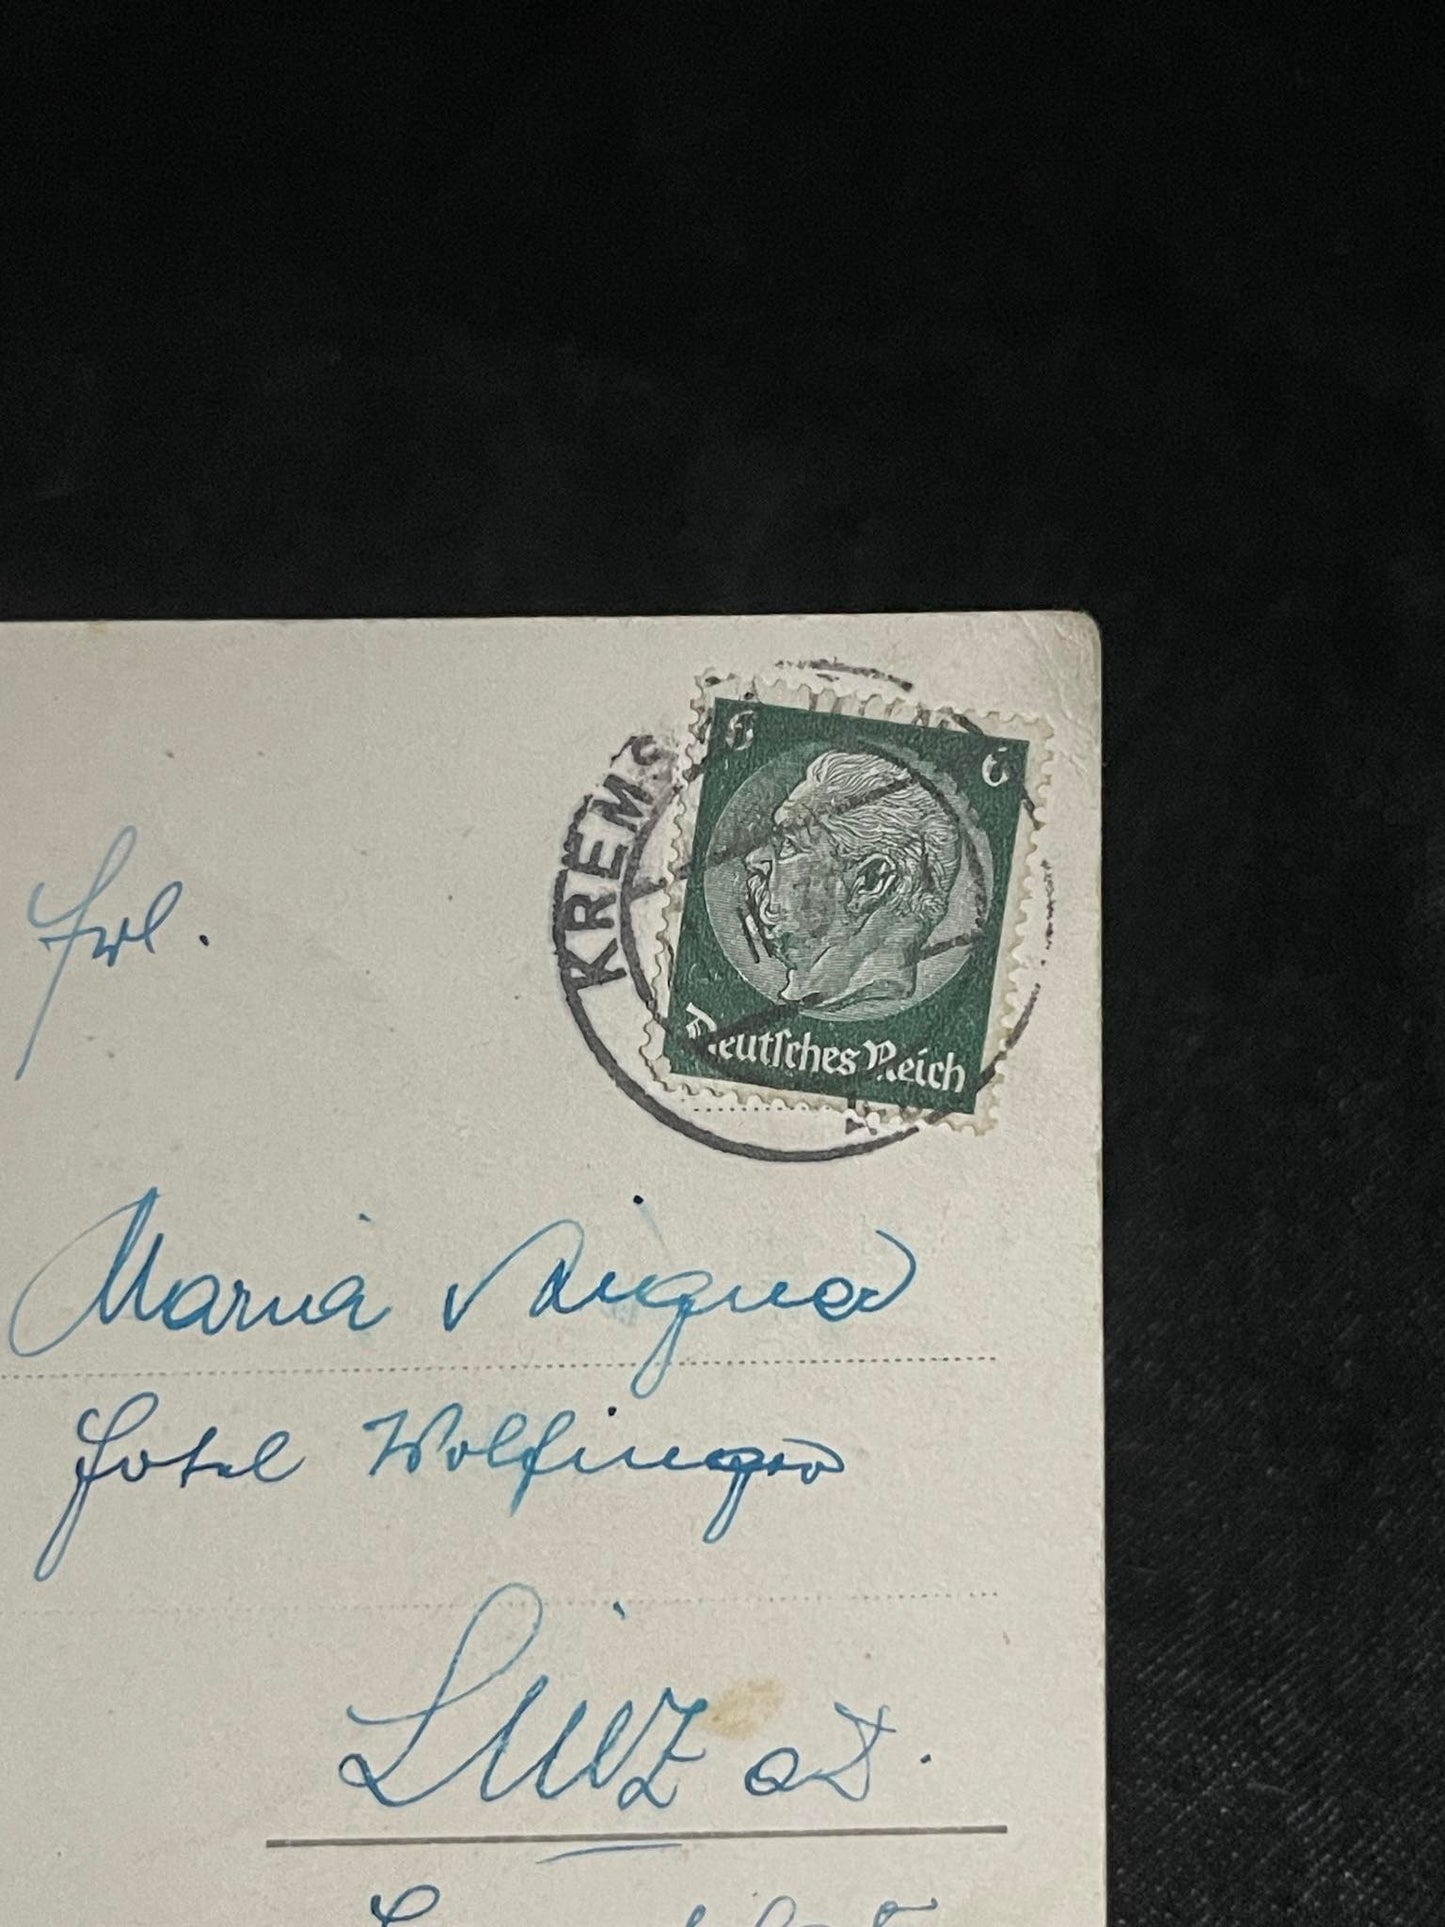 KREMS
6 6
Deutsches Reich
Frl.
Maria Aigner
Hotel Wolfinger
Linz a D.